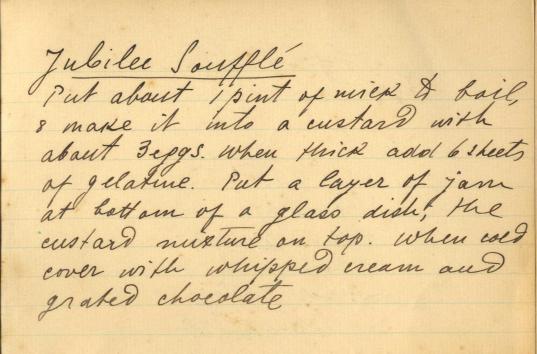 Jubilee Soufflé
Put about 1 pint of milk to boil,
& make it into a custard with
about 3 eggs. When thick add 6 sheets
of gelatine. Put a layer of jam
at bottom of a glass dish, the
custard mixture on top. When cold
cover with whipped cream and
grated chocolate